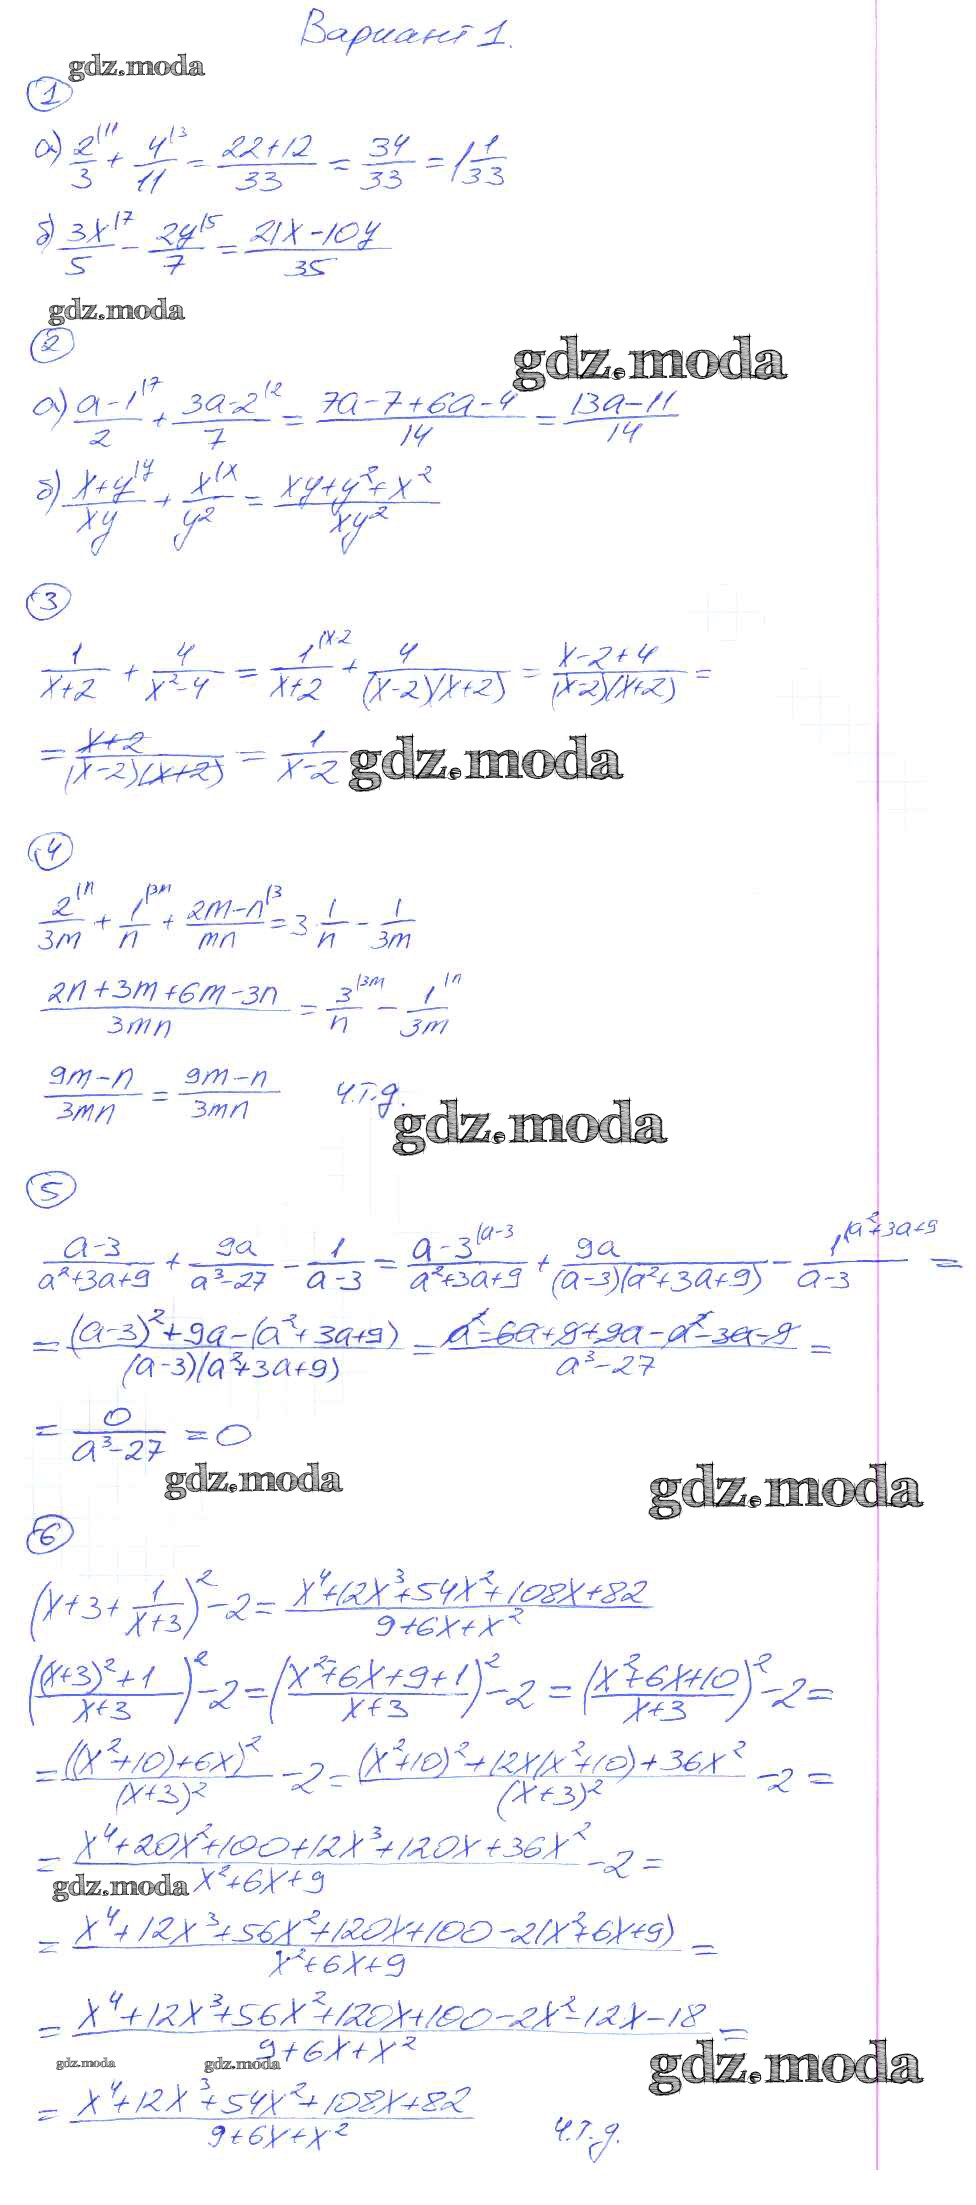 Вариант 1.
gdz.moda
1
а) 2/3 (11 + 4/11 (3 = (22+12)/33 = 34/33 = 1 1/33
б) 3x/5 (7 − 2y/7 (5 = (21x−10y)/35
gdz.moda
2
gdz.moda
а) (a−1)/2 (7 + (3a−2)/7 (2 = (7a−7+6a−4)/14 = (13a−11)/14
б) (x+y)/xy (y + x/y² (x = (xy+y²+x²)/xy²
3
1/(x+2) + 4/(x²−4) = 1/(x+2) (x-2 + 4/((x−2)(x+2)) = (x−2+4)/((x−2)(x+2)) =
= (x+2)/((x−2)(x+2)) = 1/(x−2)
gdz.moda
4
2/3m (n + 1/n (3m + (2m−n)/mn (3 = 3·1/n − 1/3m
(2n+3m+6m−3n)/3mn = 3/n (3m − 1/3m (n
(9m−n)/3mn = (9m−n)/3mn ч.т.д.
gdz.moda
5
(a−3)/(a²+3a+9) + 9a/(a³−27) − 1/(a−3) = (a−3)/(a²+3a+9) (a−3 + 9a/((a−3)(a²+3a+9)) − 1/(a−3) (a²+3a+9 =
= ((a−3)²+9a−(a²+3a+9))/((a−3)(a²+3a+9)) = (a²−6a+9+9a−a²−3a−9)/(a³−27) =
= 0/(a³−27) = 0
gdz.moda
gdz.moda
6
(x+3+1/(x+3))²−2 = (x⁴+12x³+54x²+108x+82)/(9+6x+x²)
(((x+3)²+1)/(x+3))²−2 = ((x²+6x+9+1)/(x+3))²−2 = ((x²+6x+10)/(x+3))²−2 =
= ((x²+10)+6x)²/(x+3)² −2 = ((x²+10)²+12x(x²+10)+36x²)/(x+3)² −2 =
= (x⁴+20x²+100+12x³+120x+36x²)/(x²+6x+9) −2 =
gdz.moda
= (x⁴+12x³+56x²+120x+100−2(x²+6x+9))/(x²+6x+9) =
= (x⁴+12x³+56x²+120x+100−2x²−12x−18)/(9+6x+x²) =
gdz.moda
gdz.moda
gdz.moda
= (x⁴+12x³+54x²+108x+82)/(9+6x+x²) ч.т.д.